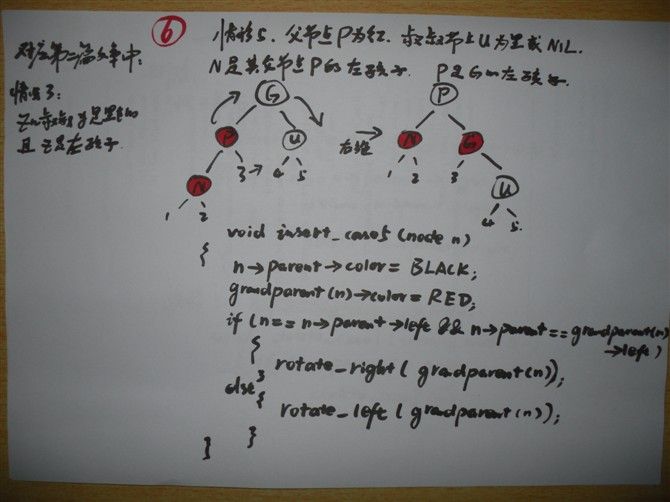 对应第二篇文章中:
情况3:
z的叔叔y是黑色的
且z是左孩子.
6
情形5. 父节点P为红. 叔叔节点U为黑或NIL.
N是其父节点P的左孩子. P是G的左孩子.
G
P
U
N
3
4 5
1 2
右旋
P
N
G
1 2
3
U
4 5
void insert_case5 (node n)
{
n→parent→color= BLACK;
grandparent(n)→color=RED;
if (n== n→parent→left && n→parent==grandparent(n)
→left)
{
rotate_right( grandparent(n));
}
else {
rotate_left( grandparent(n));
}
}